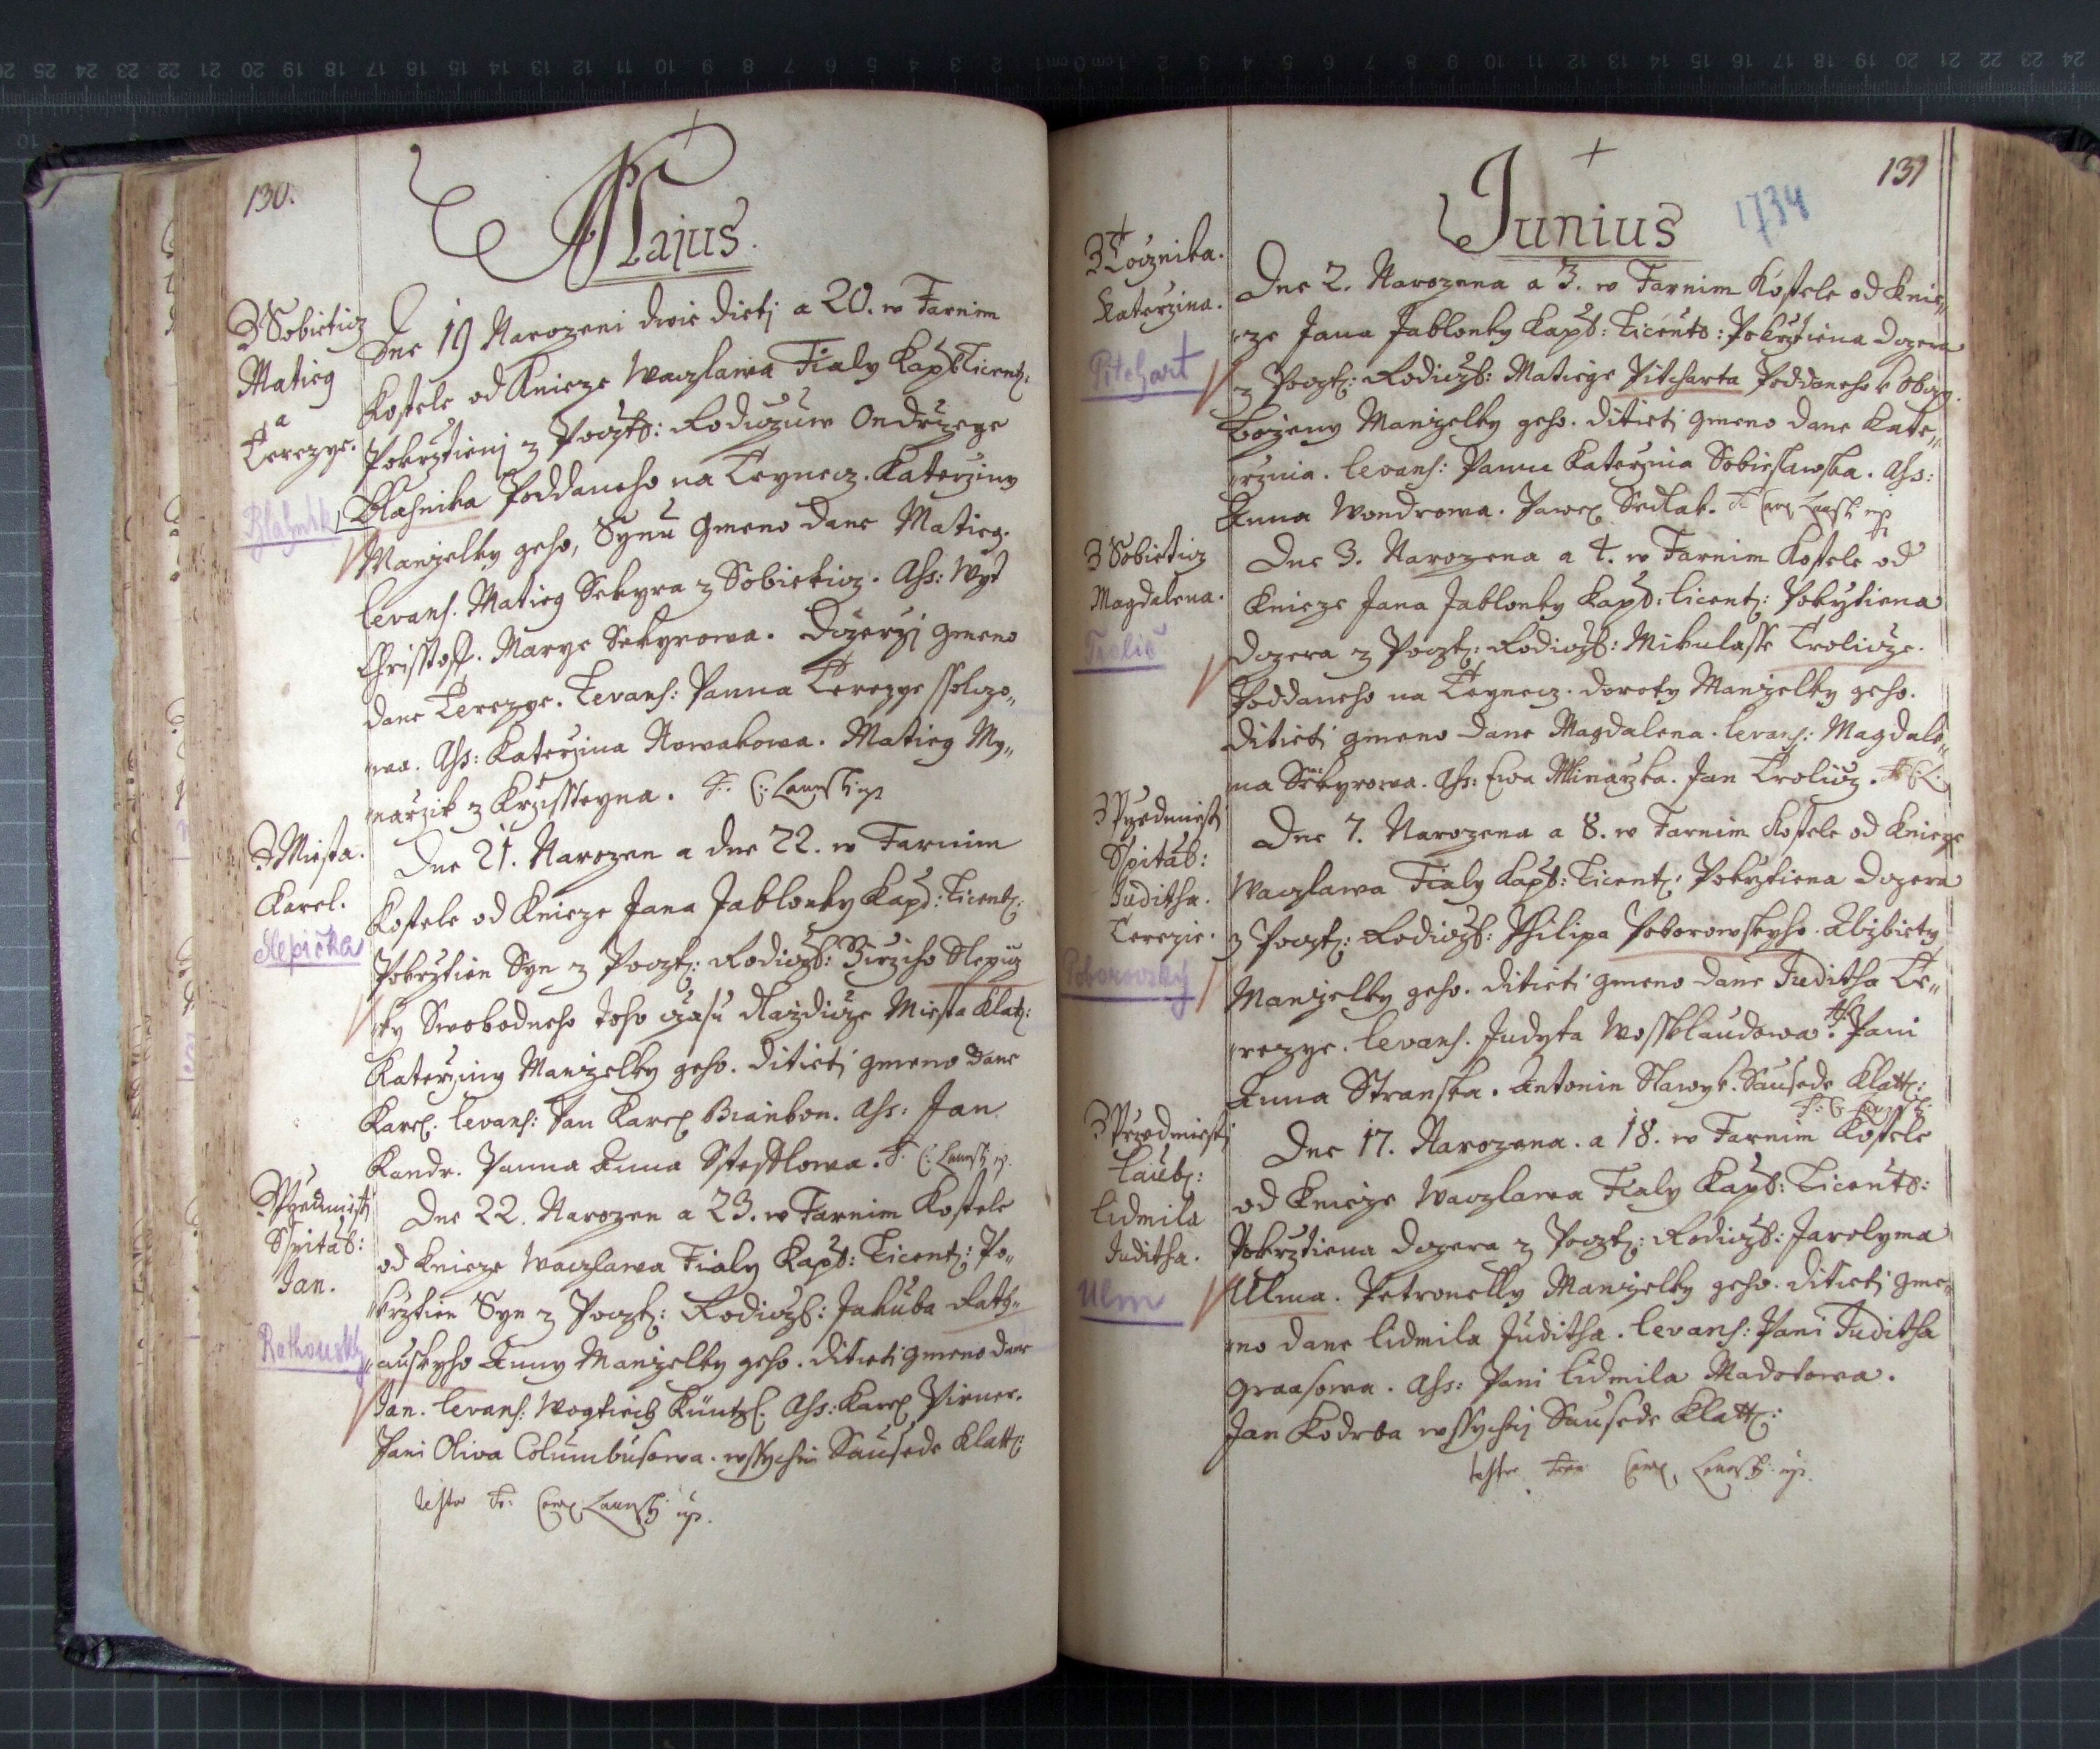 130.
Majus.
Z Sobieticz
Matieg
a
Terezye.
Blahnik
Dne 19 Narozeni dwie dieti a 20. w Farnim
Kostele od Knieze Waczlawa Fialy Kapl: Licent:
Pokrztieni z Poczt: Rodiczuw Ondrzege
Blahnika Poddaneho na Teynecz. Katerziny
Manzelky geho, Synu Gmeno dane Matieg.
Levans. Matieg Sekyra z Sobieticz. Ass: Wyt
Christof. Marye Sekyrowa. Dczerzi gmeno
dane Terezye. Levans: Panna Terezye
wa. Ass: Katerzina Nowakowa. Matieg My„
narzik z Krzissteyna.
Z Miesta.
Karel.
Slepička
Dne 21. Narozen a dne 22. w Farnim
Kostele od Knieze Jana Jablonky Kapl: Licent:
Pokrztien Syn z Poczt: Rodicz: Girziho Slepicz
ky Swobodneho toho czasu Miesta Klat:
Katerziny Manzelky geho. Ditieti gmeno dane
Karel. Levans: Pan Karel. Ass: Jan
Kandr. Panna Anna
Z Przedmiesti
Sspital:
Jan.
Rathouský
Dne 22. Narozen a 23. w Farnim Kostele
od Knieze Waczlawa Fialy Kapl: Licent: Po„
krztien Syn z Poczt: Rodicz: Jakuba Rath„
auskyho Anny Manzelky geho. Ditieti gmeno dane
Jan. Levans: Wogtiech Küntzl. Ass: Karel Pirner.
Pani Oliva Columbusowa. wssychni Sausede Klatt:
131
Junius
1734
Z Tocznika.
Katerzina.
Pitchart
Dne 2. Narozena a 3. w Farnim Kostele od Knie„
ze Jana Jablonky Kapl: Licent: Pokrztiena Dczera
z Poczt: Rodicz: Matiege Pitcharta Poddaneho k Obczy.
Manzelky geho. Ditieti gmeno dane Kate„
rzina. Levans: Panna Katerzina Sobieslawska. Ass:
Anna Wondrowa. Pawel Sedlak.
Z Sobieticz
Magdalena.
Trolič
Dne 3. Narozena a 4. w Farnim Kostele od
Knieze Jana Jablonky Kapl: Licent: Pokrztiena
Dczera z Poczt: Rodicz: Mikulasse Trolicze.
Poddaneho na Teynecz. Doroty Manzelky geho.
Ditieti gmeno dane Magdalena. Levans: Magdale„
na Sekyrowa. Ass: Ewa Mlinarzka. Jan Trolicz.
Z Przedmiesti
Sspital:
Juditha.
Terezie.
Poborovský
Dne 7. Narozena a 8. w Farnim Kostele od Knieze
Waczlawa Fialy Kapl: Licent: Pokrztiena Dczera
z Poczt: Rodicz: Philipa Poborowskyho. Alzbiety
Manzelky geho. Ditieti gmeno dane Juditha Te„
rezye. Levans. Judyta Wossklaudowa. Ass: Pani
Anna Stranska. Antonin Slawyk. Sausede Klatt:
Z Przedmiesti
Laub:
Lidmila
Juditha.
Ulm
Dne 17. Narozena. a 18. w Farnim Kostele
od Knieze Waczlawa Fialy Kapl: Licent:
Pokrztiena Dczera z Poczt: Rodicz: Jarolyma
Ulma. Petronelly Manzelky geho. Ditieti gme„
no dane Lidmila Juditha. Levans: Pani Juditha
Graasowa. Ass: Pani Lidmila Madotowa.
Jan Kodrba wssychni Sausede Klatt: